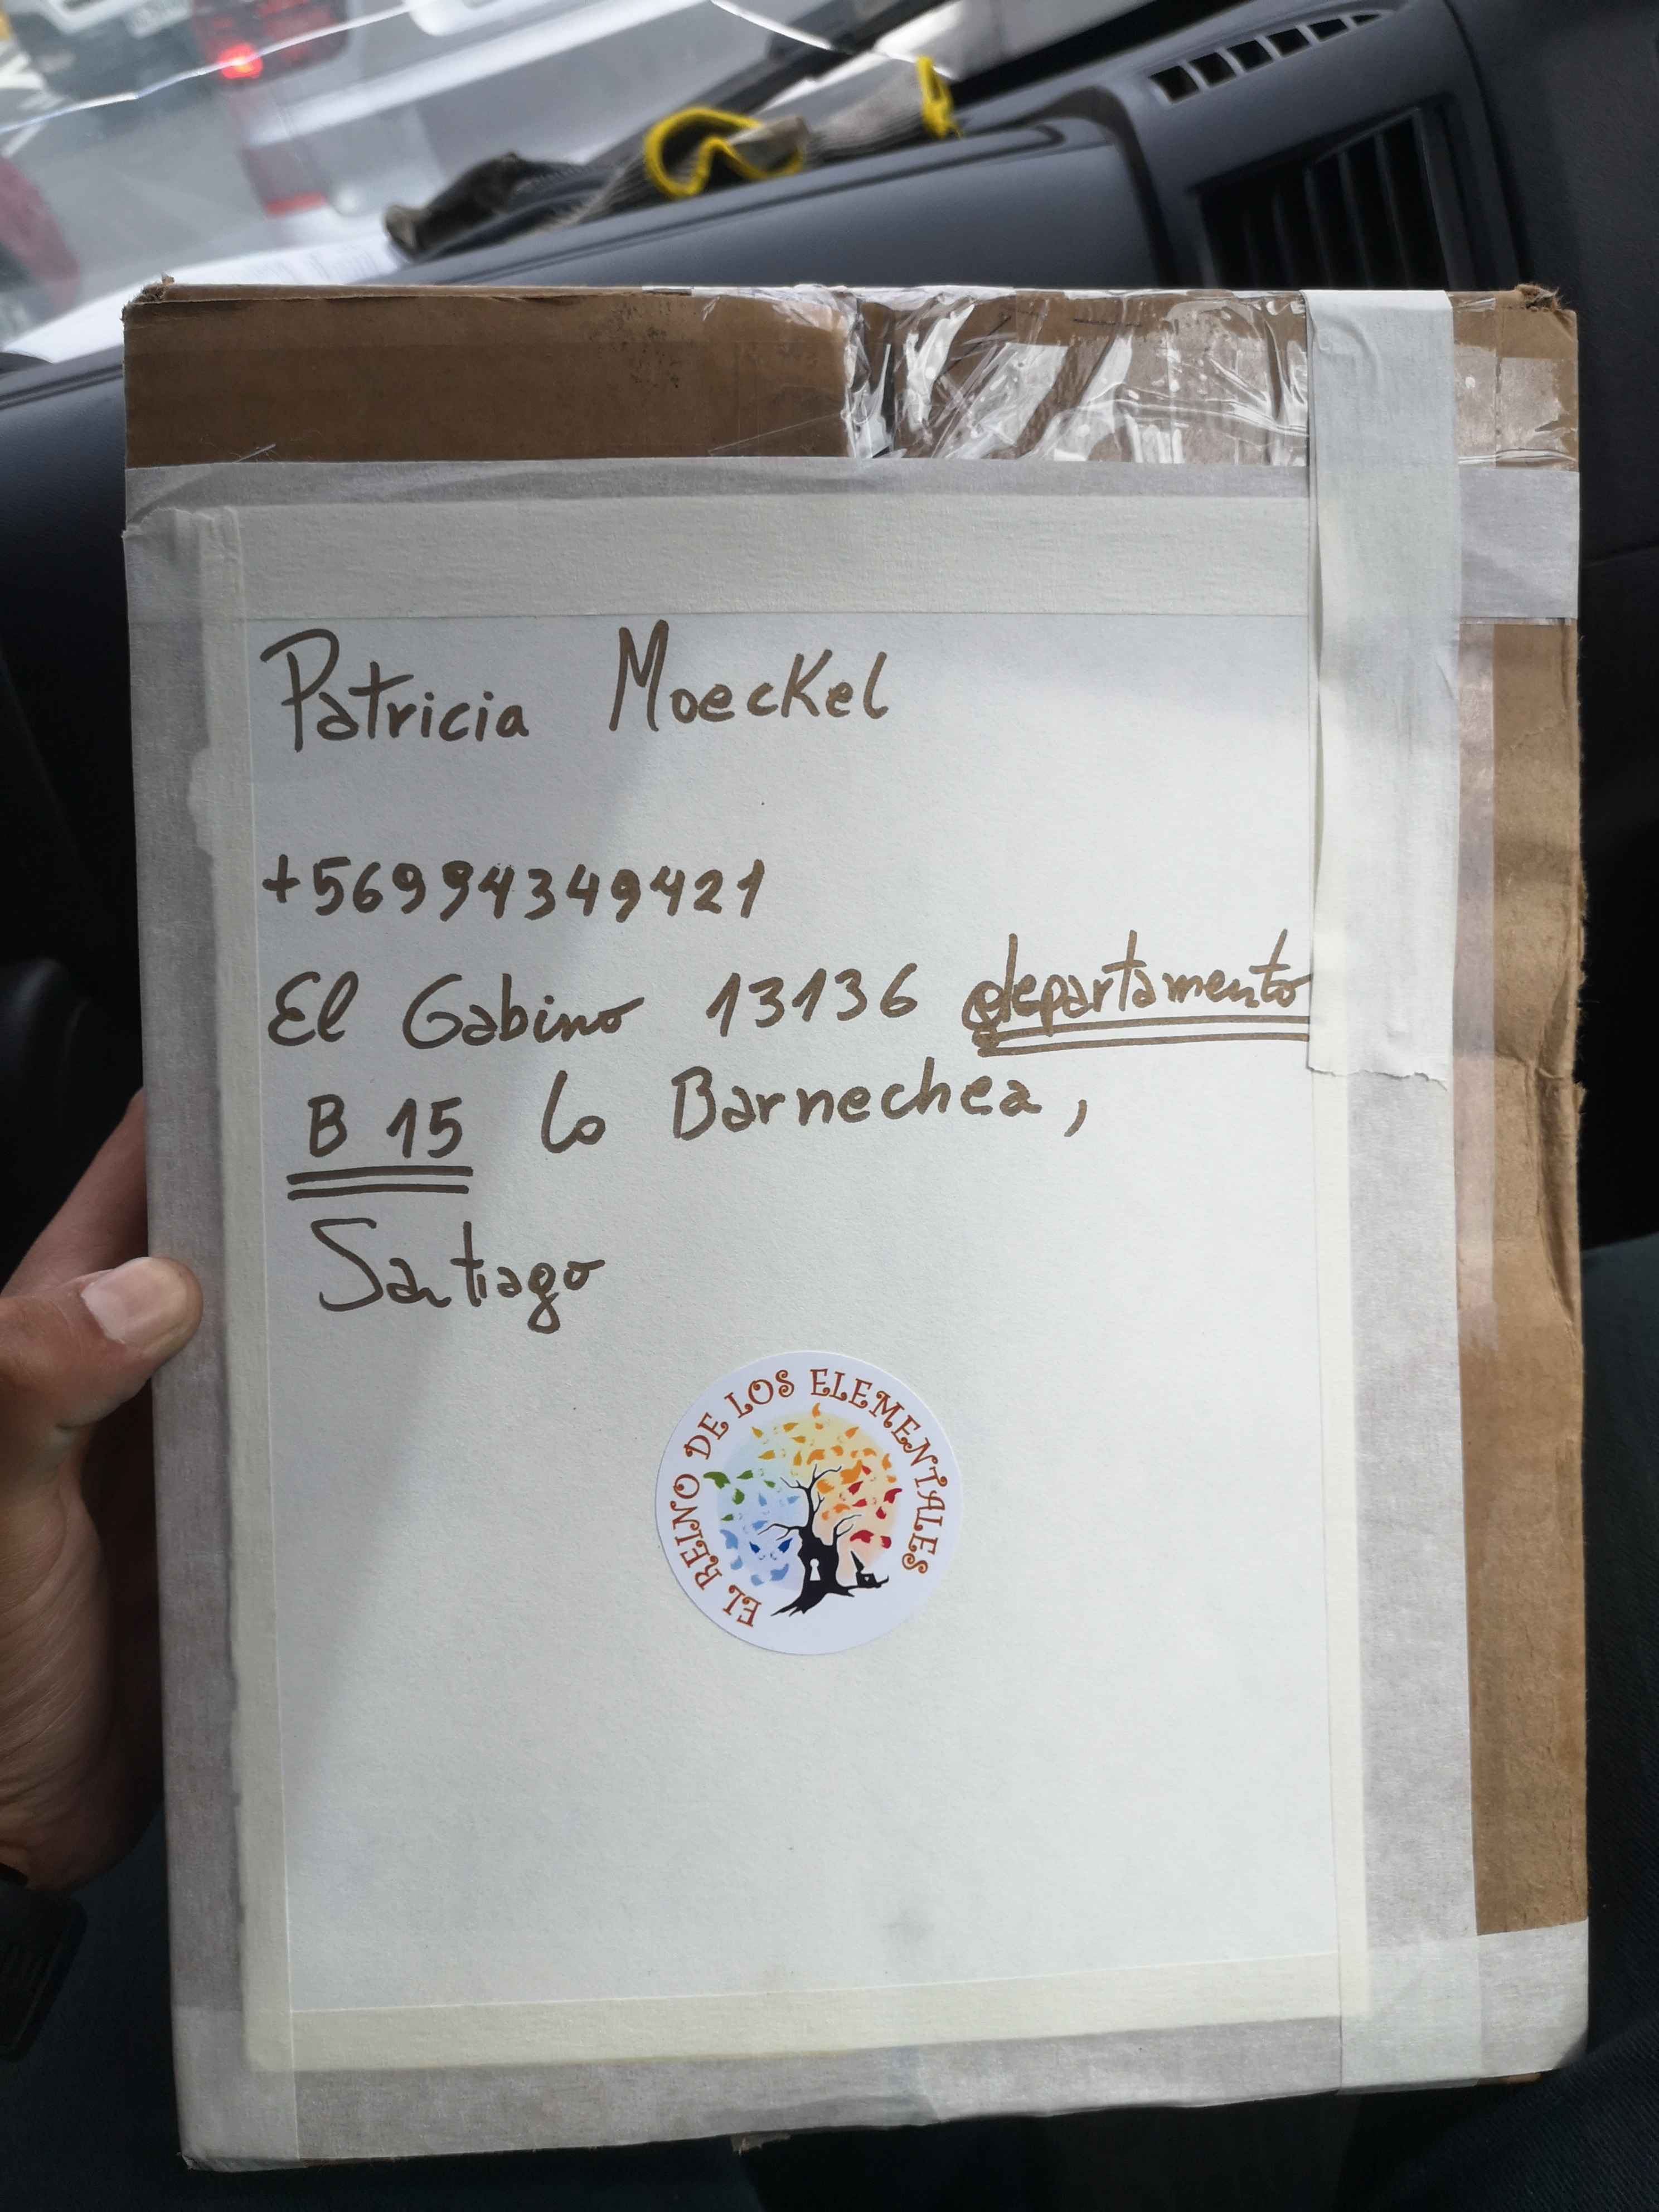 Patricia Moeckel
+56994349421
El Gabino 13136 departamento
B 15 lo Barnechea,
Santiago
EL REINO DE LOS ELEMENTALES